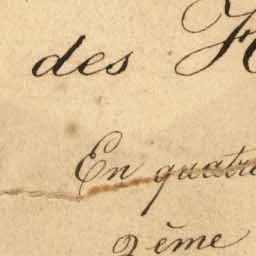 des
En quatre
2ème